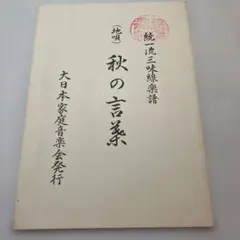 統一流三味線楽譜
(地唄)
秋の言葉
大日本家庭音楽会発行